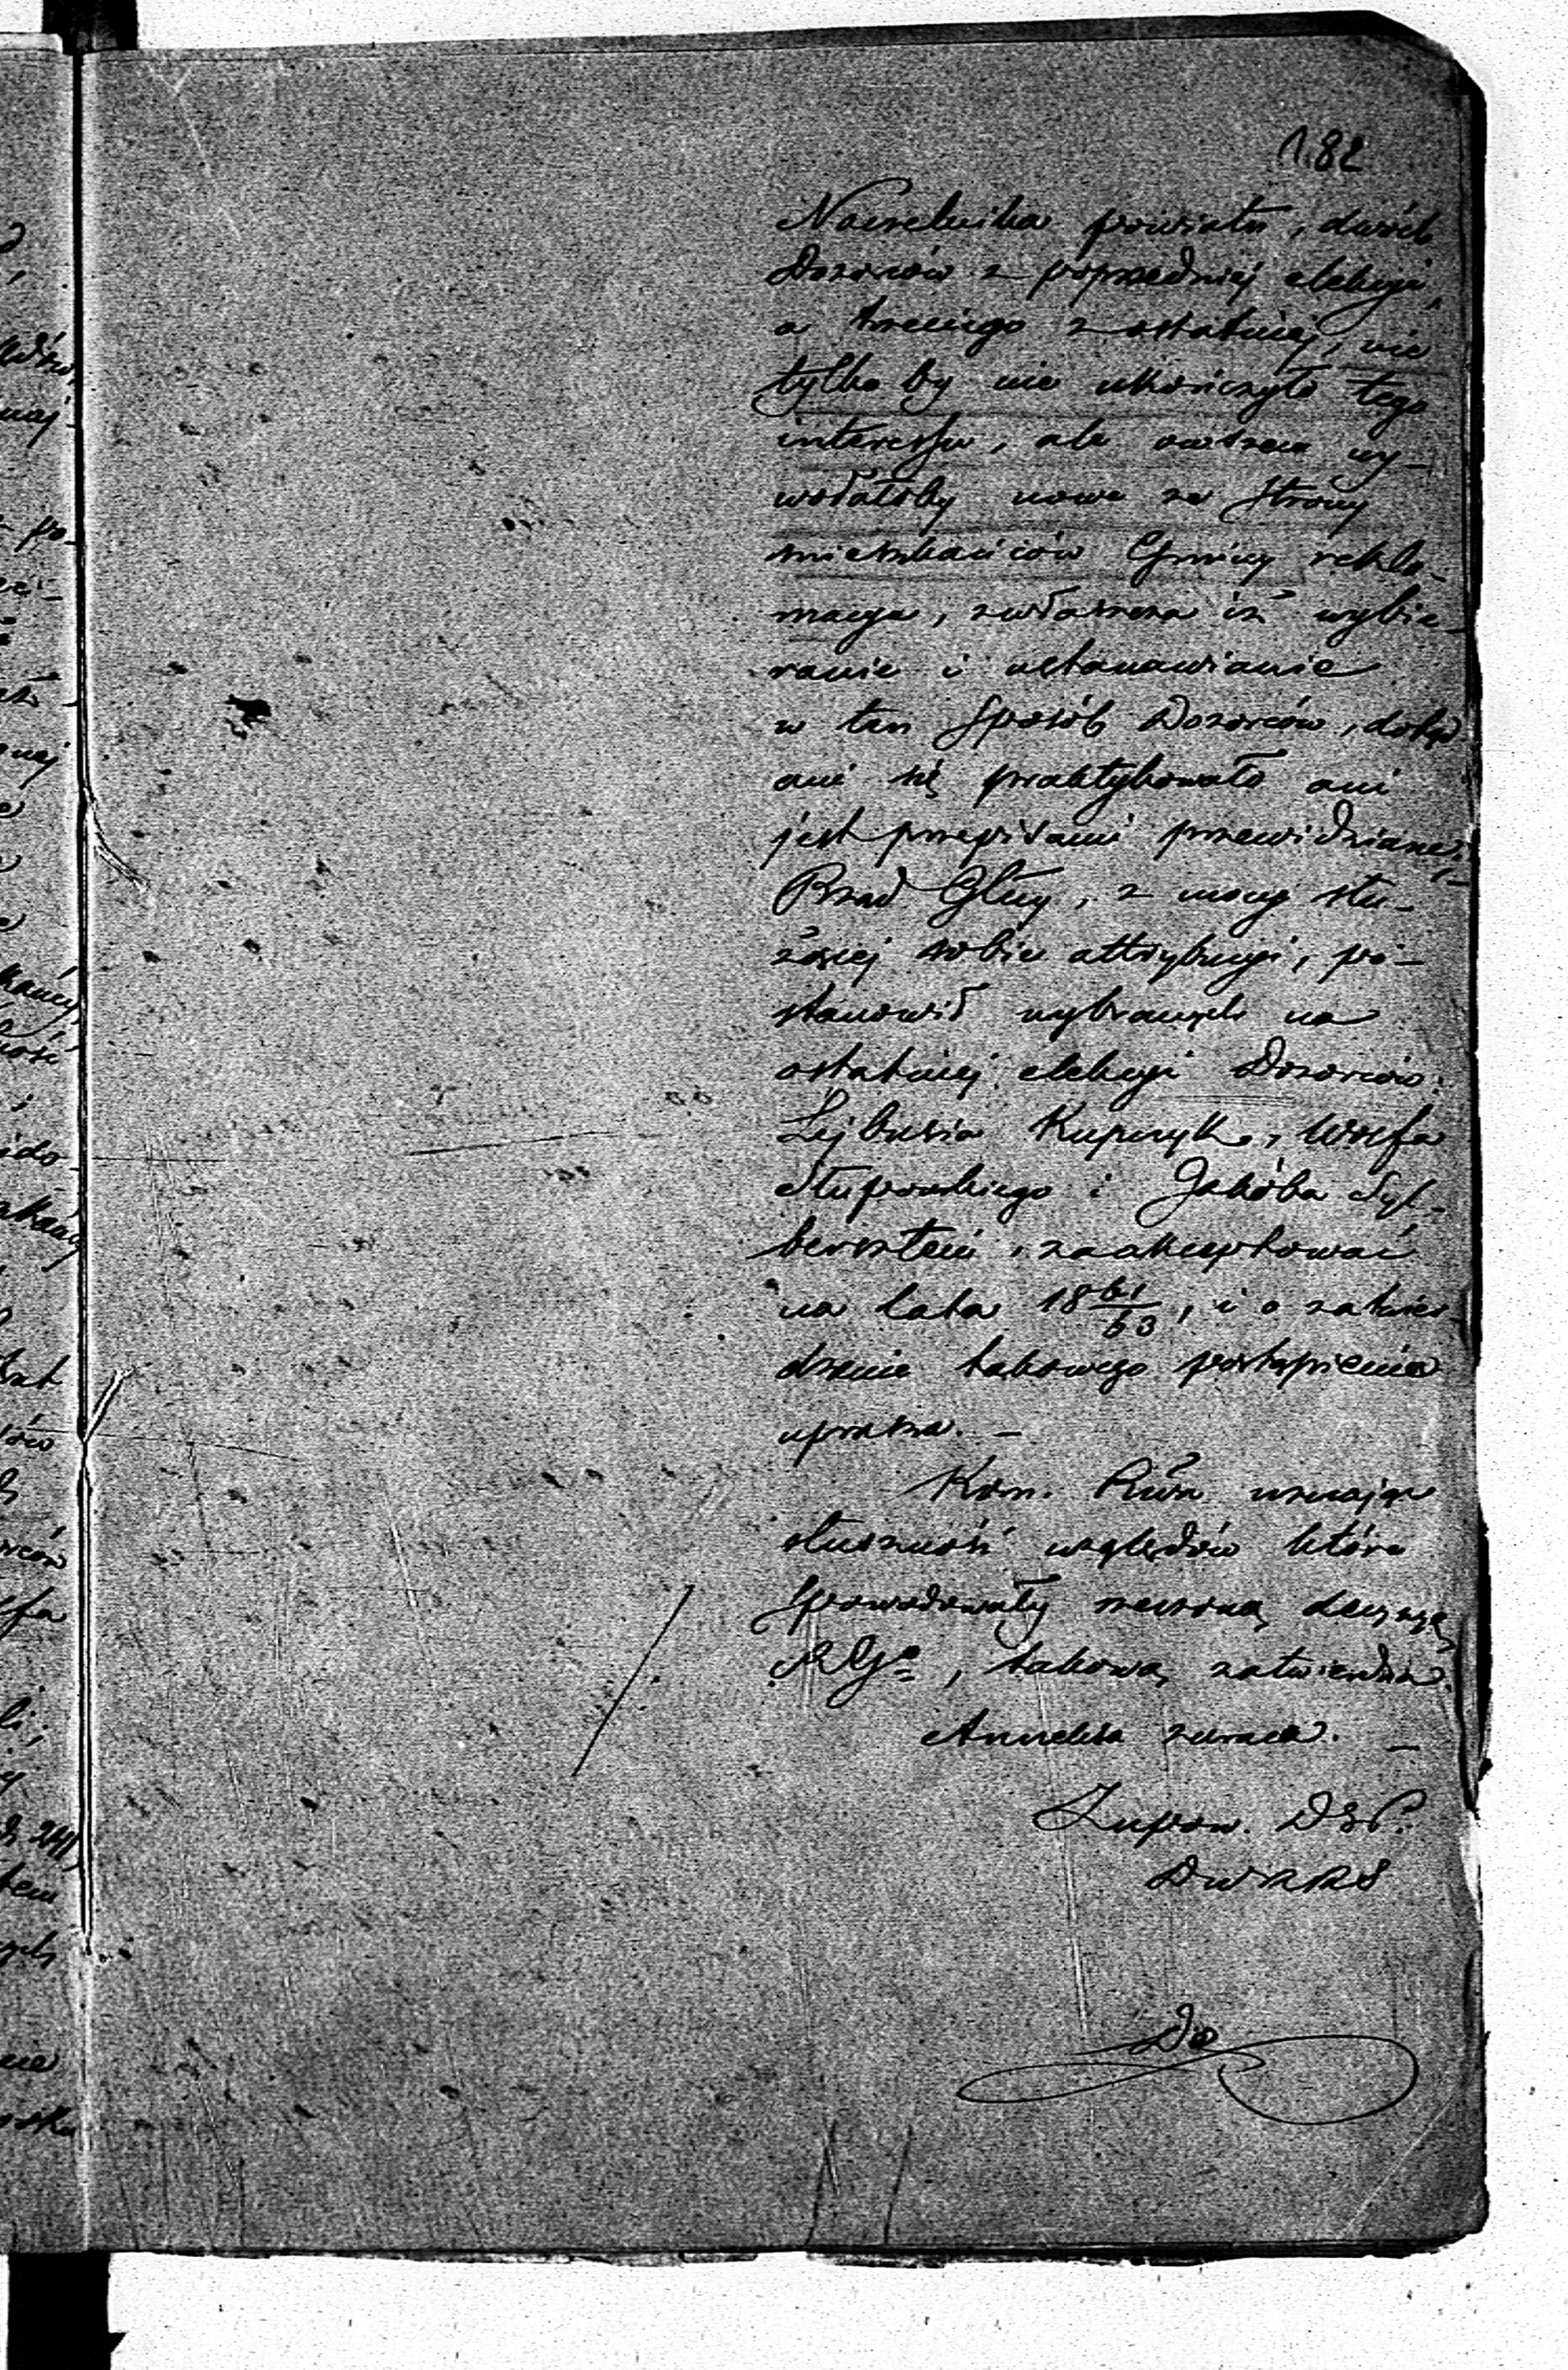 182
Naczelnika powiatu, dwóch
Dozorców z poprzedniej elekcyi,
a trzeciego z ostatniej, nie
tylko by nie ukończyło tego
interessu, ale owszem wy-
wołałoby nowe ze strony
mieszkańców Gminy rekla-
macye, zwłaszcza iż wybie-
ranie i ustanawianie
w ten sposób Dozorców, dotąd
ani się praktykowało ani
jest przepisami przewidziane;
Rząd Głny, z mocy słu-
żącej sobie attrybucyi, po-
stanowił wybranych na
ostatniej elekcyi Dozorców:
Lejbusia Kupczyk, Wolfa
Słupowskiego i Jakóba Syl-
bersztein, zaakceptować
na lata 18 61/63, i o zatwier
dzenie takowego postąpienia
uprasza. —
Kom. Rząd. uznając
słuszność względów które
spowodowały rzeczoną decyzyę
RGo, takową zatwierdza.
Annexa zwraca. —
Zupow. DSP.